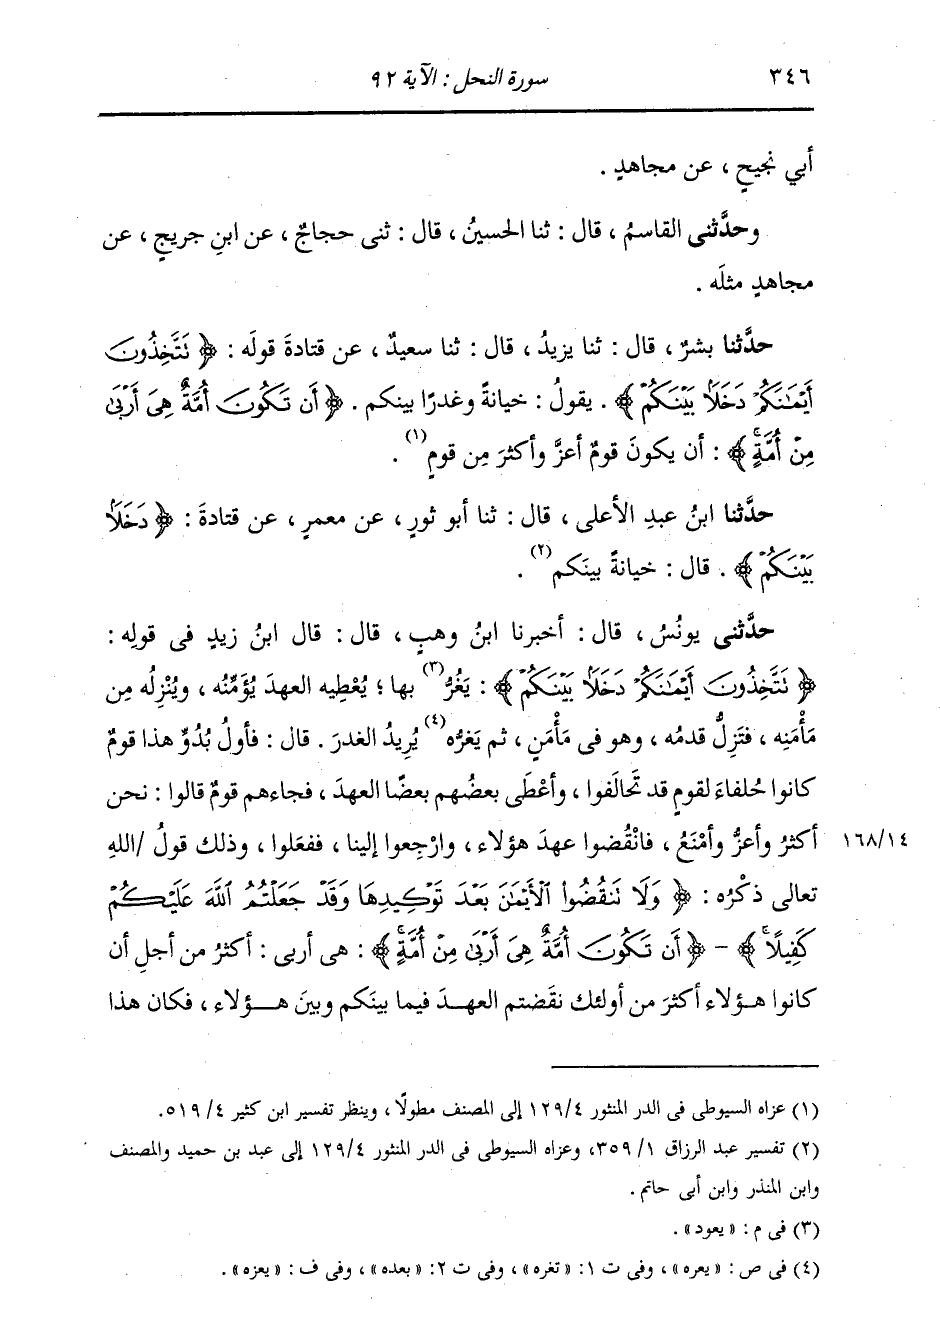 ٣٤٦ سورة النحل : الآية ٩٢
أبي نجيحٍ ، عن مجاهدٍ .
وحدَّثنى القاسمُ ، قال : ثنا الحسينُ ، قال : ثنى حجاجٌ ، عن ابنِ جريجٍ ، عن
مجاهدٍ مثلَه .
حدَّثنا بشرٌ ، قال : ثنا يزيدُ ، قال : ثنا سعيدٌ ، عن قتادةَ قولَه : ﴿ نَتَّخِذُونَ
أَيْمَٰنَكُمْ دَخَلًا بَيْنَكُمْ ﴾ . يقولُ : خيانةً وغدرًا بينكم . ﴿ أَن تَكُونَ أُمَّةٌ هِىَ أَرْبَىٰ
مِنْ أُمَّةٍ ﴾ : أن يكونَ قومٌ أعزَّ وأكثرَ مِن قومٍ (١) .
حدَّثنا ابنُ عبدِ الأعلى ، قال : ثنا أبو ثورٍ ، عن معمرٍ ، عن قتادةَ : ﴿ دَخَلًا
بَيْنَكُمْ ﴾ . قال : خيانةً بينَكم (٢) .
حدَّثنى يونُسُ ، قال : أخبرنا ابنُ وهبٍ ، قال : قال ابنُ زيدٍ فى قولِه :
﴿ نَتَّخِذُونَ أَيْمَٰنَكُمْ دَخَلًا بَيْنَكُمْ ﴾ : يَغُرُّ (٣) بها ؛ يُعْطِيه العهدَ يُؤَمِّنُه ، ويُنْزِلُه مِن
مَأْمَنِه ، فتَزِلُّ قدمُه ، وهو فى مَأْمَنٍ ، ثم يَغرُّه (٤) يُرِيدُ الغدرَ . قال : فأولُ بُدُوِّ هذا قومٌ
كانوا حُلفاءَ لقومٍ قد تَحالَفوا ، وأَعْطَى بعضُهم بعضًا العهدَ ، فجاءهم قومٌ قالوا : نحن
أكثرُ وأعزُّ وأَمْنَعُ ، فانْقُضوا عهدَ هؤلاء ، وارْجِعوا إلينا ، ففعَلوا ، وذلك قولُ /اللهِ ١٦٨/١٤
تعالى ذكْرُه : ﴿ وَلَا نَنقُضُواْ ٱلْأَيْمَٰنَ بَعْدَ تَوْكِيدِهَا وَقَدْ جَعَلْتُمُ ٱللَّهَ عَلَيْكُمْ
كَفِيلًا ﴾ - ﴿ أَن تَكُونَ أُمَّةٌ هِىَ أَرْبَىٰ مِنْ أُمَّةٍ ﴾ : هى أربى : أكثرُ من أجلِ أن
كانوا هؤلاء أكثرَ من أولئك نقَضتم العهدَ فيما بينَكم وبينَ هؤلاء ، فكان هذا
(١) عزاه السيوطى فى الدر المنثور ١٢٩/٤ إلى المصنف مطولًا ، وينظر تفسير ابن كثير ٥١٩/٤.
(٢) تفسير عبد الرزاق ٣٥٩/١، وعزاه السيوطى فى الدر المنثور ١٢٩/٤ إلى عبد بن حميد والمصنف
وابن المنذر وابن أبى حاتم .
(٣) فى م : « يعود » .
(٤) فى ص : « يعره » ، وفى ت ١ : « تغره » ، وفى ت ٢ : « بعده » ، وفى ف : « يعزه » .